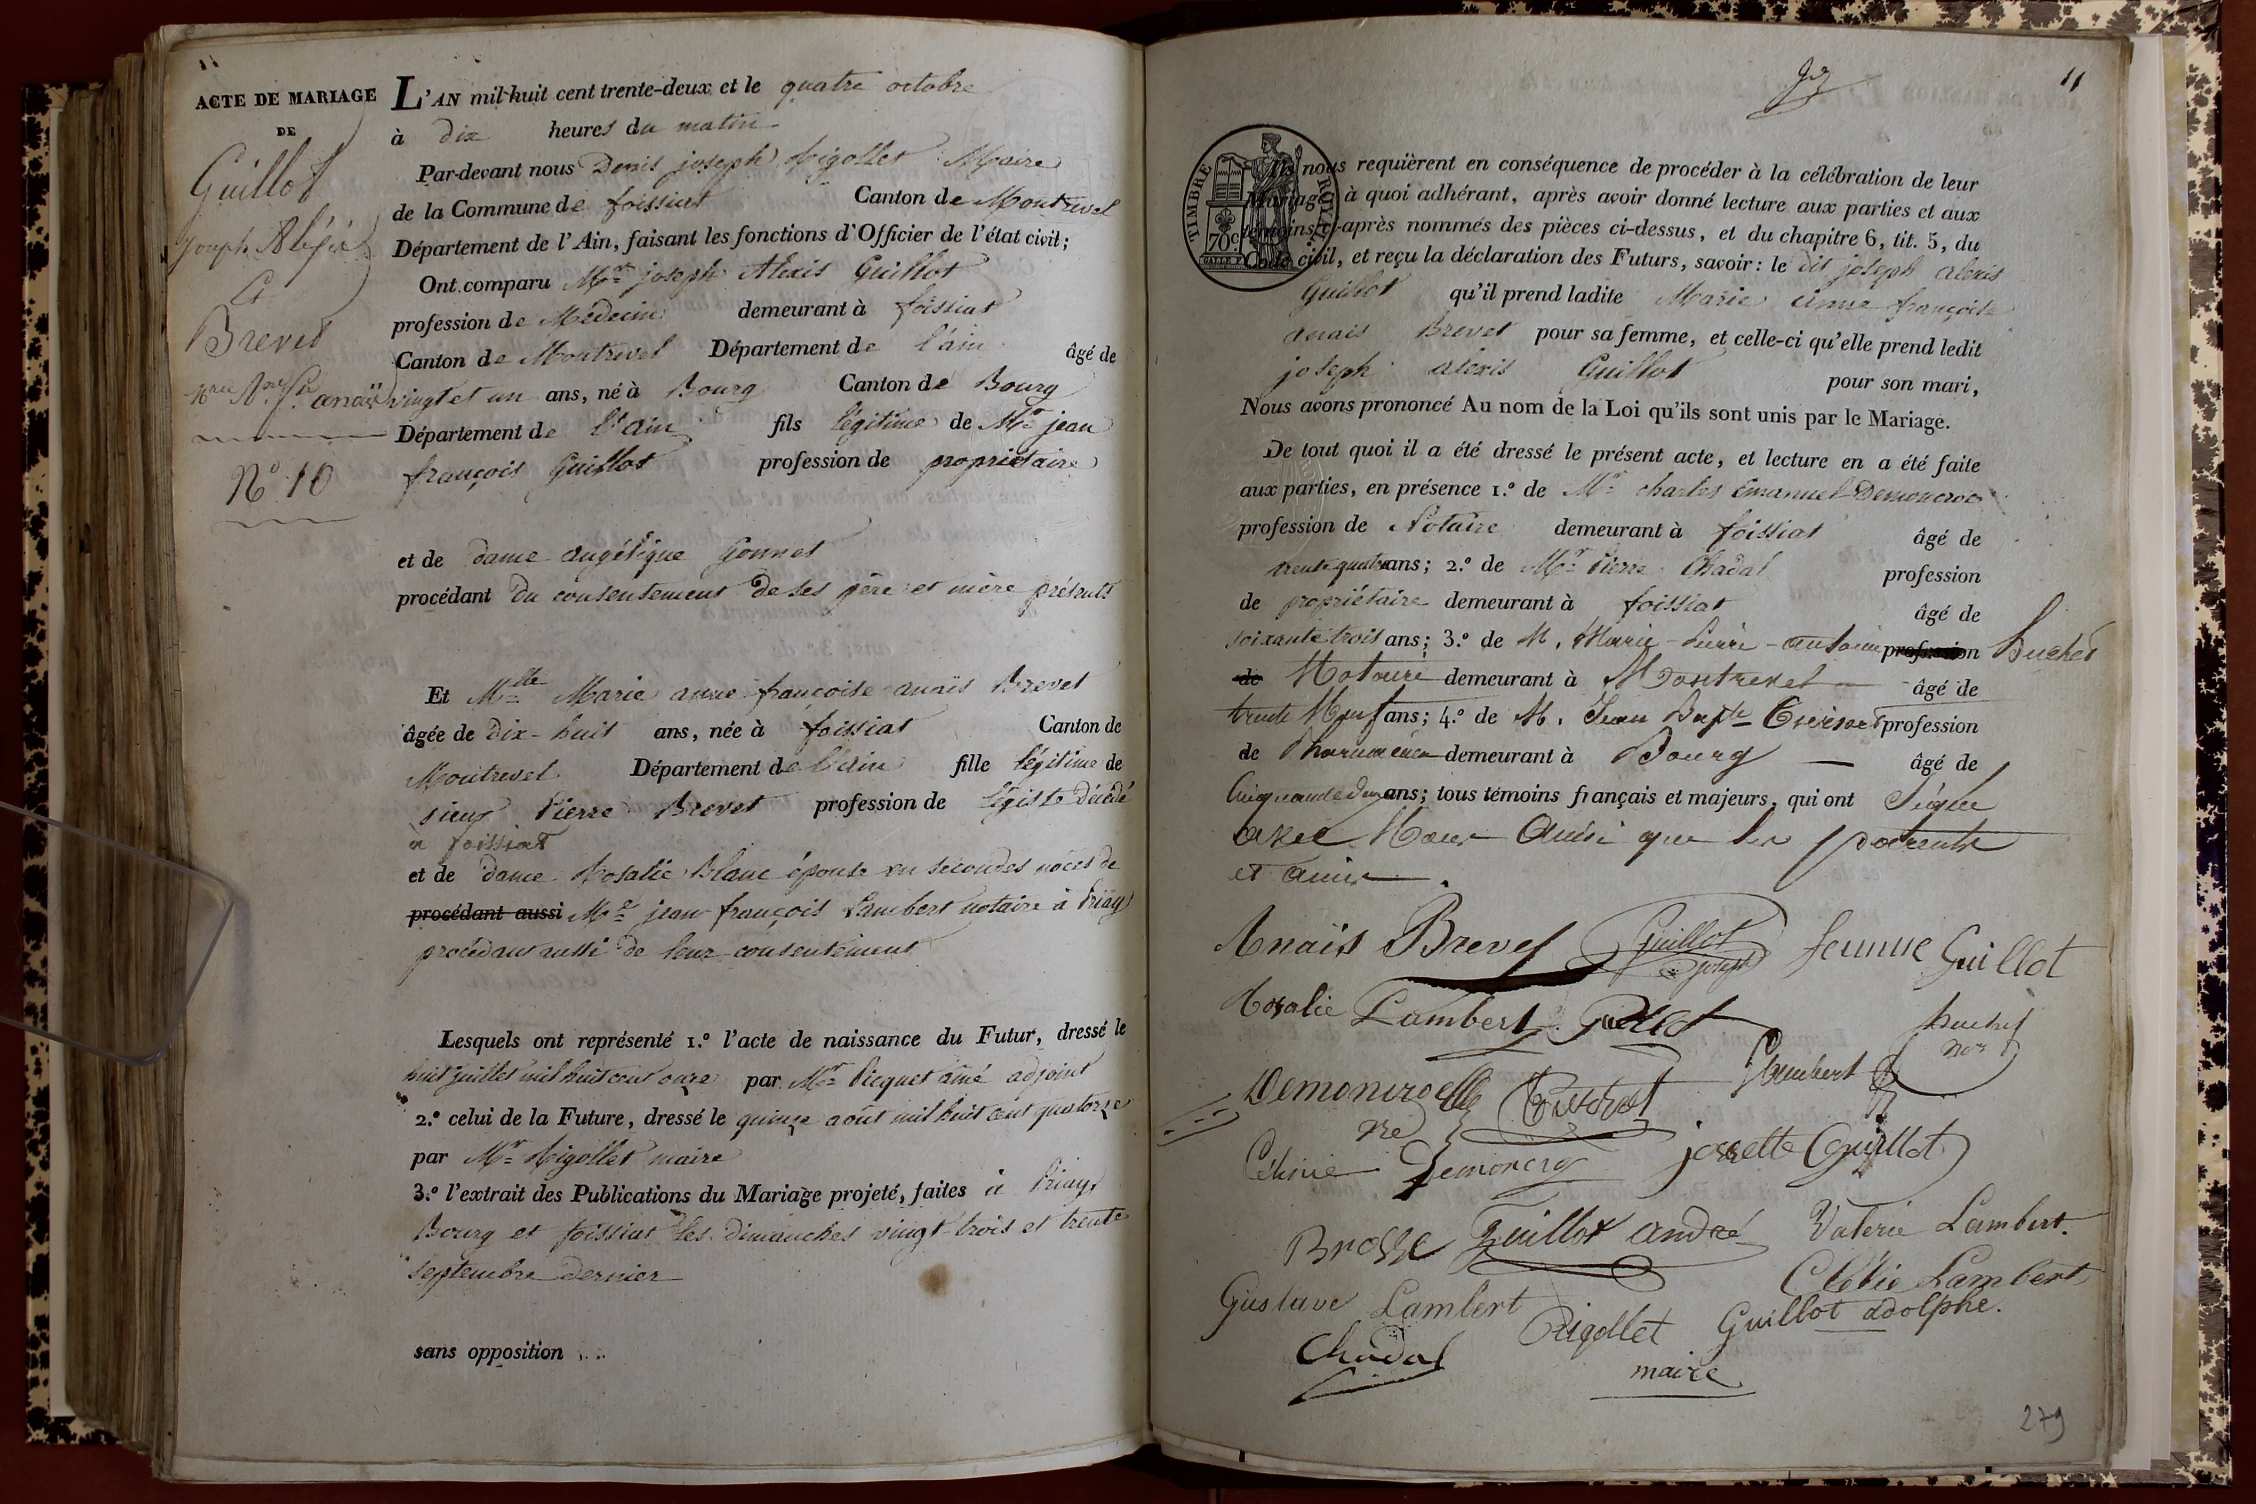 ACTE DE MARIAGE
DE
Guillot
Joseph Alexis
Et
Brevet
Mie Ane Fse anaïs
N° 10
L'AN mil-huit cent trente-deux et le quatre octobre
à dix heures du matin
Par-devant nous Denis joseph Rigollet Maire
de la Commune de foissiat Canton de Montrevel
Département de l'Ain, faisant les fonctions d'Officier de l'état civil;
Ont comparu Mr joseph Alexis Guillot
profession de Médecin demeurant à foissiat
Canton de Montrevel Département de l'ain âgé de
vingt et un ans, né à Bourg Canton de Bourg
Département de l'ain fils légitime de Mr jean
françois Guillot profession de propriétaire
et de dame angélique Gonnet
procédant du consentement de ses père et mère présents
Et Mlle Marie anne françoise anaïs Brevet
âgée de dix-huit ans, née à foissiat Canton de
Montrevel Département de l'ain fille légitime de
sieur Pierre Brevet profession de légiste décédé
à foissiat
et de dame Rosalie Blanc épouse en secondes noces de
procédant aussi Mr jean françois Lambert notaire à Priay
procédant aussi de leur consentement
Lesquels ont représenté 1.° l'acte de naissance du Futur, dressé le
huit juillet mil huit cent onze par Mr Picquet aîné adjoint
2.° celui de la Future, dressé le quinze août mil huit cent quatorze
par Mr Rigollet maire
3.° l'extrait des Publications du Mariage projeté, faites à Priay,
Bourg et foissiat les dimanches vingt-trois et trente
septembre dernier
sans opposition
11
TIMBRE ROYAL
70c
Ils nous requièrent en conséquence de procéder à la célébration de leur
Mariage; à quoi adhérant, après avoir donné lecture aux parties et aux
témoins ci-après nommés des pièces ci-dessus, et du chapitre 6, tit. 5, du
Code civil, et reçu la déclaration des Futurs, savoir: le dit joseph alexis
Guillot qu'il prend ladite Marie anne françoise
anais Brevet pour sa femme, et celle-ci qu'elle prend ledit
joseph alexis Guillot pour son mari,
Nous avons prononcé Au nom de la Loi qu'ils sont unis par le Mariage.
De tout quoi il a été dressé le présent acte, et lecture en a été faite
aux parties, en présence 1.° de Mr charles émanuel Demoncroc
profession de Notaire demeurant à foissiat âgé de
trente quatre ans; 2.° de Mr Pierre Chadal profession
de propriétaire demeurant à foissiat âgé de
soixante trois ans; 3.° de M. Marie-Pierre-antoine profession Buchet
de Notaire demeurant à Montrevel âgé de
trente Neuf ans; 4.° de M. Jean Bapte profession
de Pharmacien demeurant à Bourg âgé de
Cinquante deux ans; tous témoins français et majeurs, qui ont Signé
avec Nous Ainsi que les parents
et amis
Anaïs Brevet Guillot joseph femme Guillot
Rosalie Lambert Guillot Buchet
Lambert nre
Demoncroc
nre
Celinie Demoncroc josette Guillot
Brosse Guillot andré Valerie Lambert.
Clélie Lambert
Gustave Lambert Rigollet Guillot adolphe.
Chadal maire
279